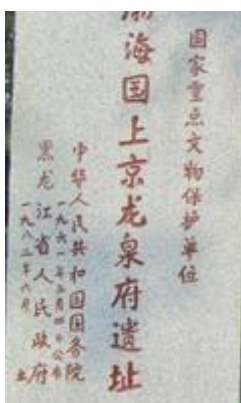 国家重点文物保护单位
渤海国上京龙泉府遗址
中华人民共和国国务院
一九六一年三月四日公布
黑龙江省人民政府
一九八三年六月 立